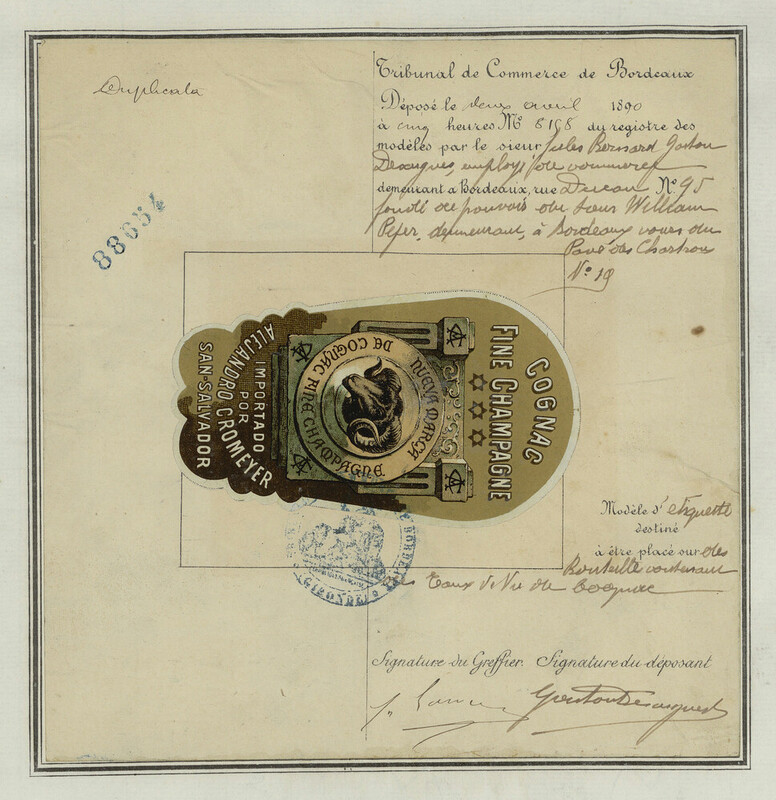 Duplicata
Tribunal de Commerce de Bordeaux
Déposé le deux avril 1890
à cinq heures No 8198 du registre des
modèles par le sieur Jules Bernard Gaston
employé de commerce
demeurant a Bordeaux, rue Ducau No 95
fondé de pouvoir du sieur William
demeurant, à Bordeaux cours du
Pavé des Chartrons
No 19
88654
COGNAC
FINE CHAMPAGNE
NUEVA MARCA
DA COGNAC FINE CHAMPAGNE
IMPORTADO
POR
ALEJANDRO CROMEYER
SAN-SALVADOR
GIRONDE
Modèle d'étiquette
destiné
à être placé sur des
Bouteille contenant
Eaux de Vie de Cognac
Signature du Greffier. Signature du déposant